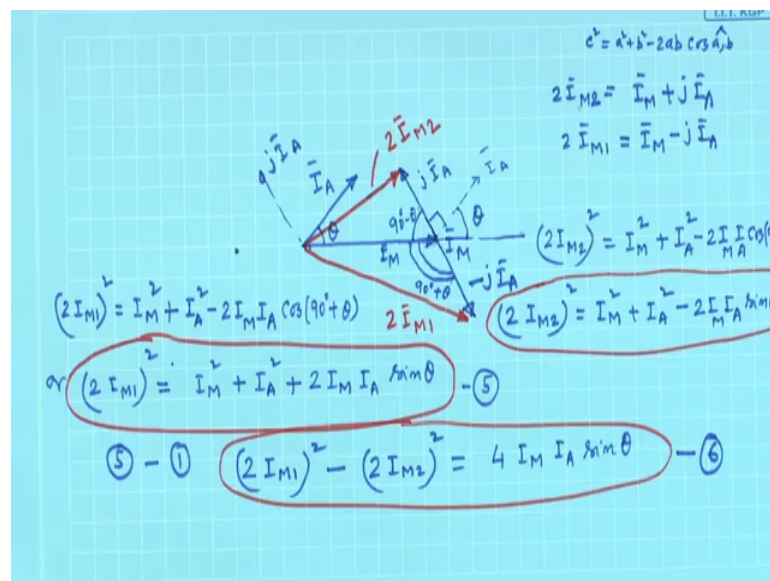 I.I.T. KGP
c² = a² + b² - 2ab cos a^,b
2Ī_M2 = Ī_M + jĪ_A
2Ī_M1 = Ī_M - jĪ_A
jĪ_A
Ī_A
2Ī_M2
jĪ_A
Ī_A
θ
90°-θ
θ
I_M
Ī_M
90°+θ
-jĪ_A
2Ī_M1
(2I_M2)² = I_M² + I_A² - 2I_M I_A cos(
(2I_M2)² = I_M² + I_A² - 2I_M I_A sin
(2I_M1)² = I_M² + I_A² - 2I_M I_A cos(90°+θ)
or (2I_M1)² = I_M² + I_A² + 2I_M I_A sinθ - ⑤
⑤ - ① (2I_M1)² - (2I_M2)² = 4 I_M I_A sinθ - ⑥